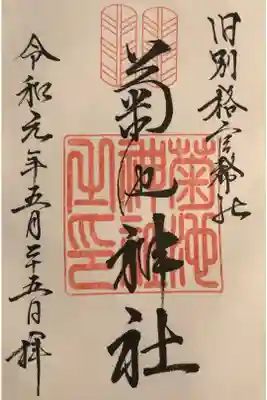 旧別格官幣社
菊池神社
菊池神社之印
令和元年五月二十五日拝